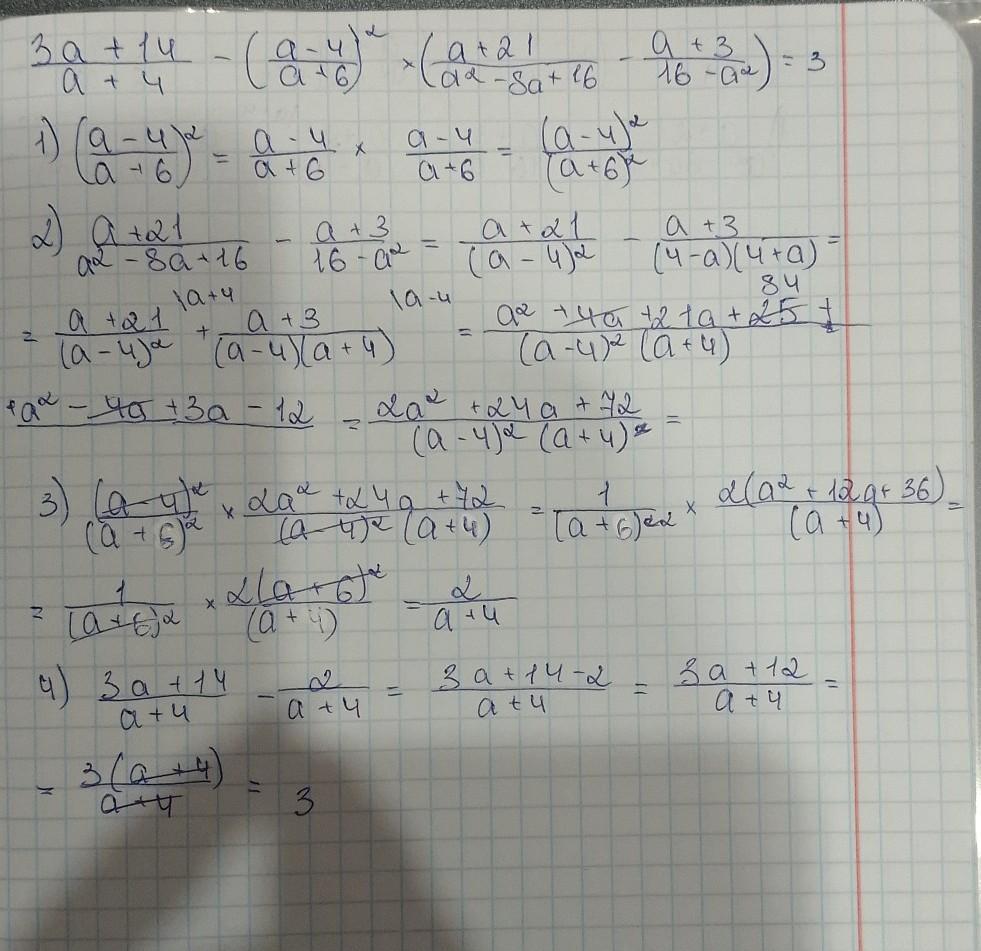 (3a + 14)/(a + 4) - ((a - 4)/(a + 6))² × ((a + 21)/(a² - 8a + 16) - (a + 3)/(16 - a²)) = 3
1) ((a - 4)/(a + 6))² = (a - 4)/(a + 6) × (a - 4)/(a + 6) = (a - 4)²/(a + 6)²
2) (a + 21)/(a² - 8a + 16) - (a + 3)/(16 - a²) = (a + 21)/(a - 4)² - (a + 3)/((4 - a)(4 + a)) =
= (a + 21)/(a - 4)² \a + 4 + (a + 3)/((a - 4)(a + 4)) \a - 4 = (a² + 4a + 21a + 84 +)/((a - 4)² (a + 4))
+ a² - 4a + 3a - 12 = (2a² + 24a + 72)/((a - 4)² (a + 4)) =
3) (a - 4)²/(a + 6)² × (2a² + 24a + 72)/((a - 4)² (a + 4)) = 1/(a + 6)² × 2(a² + 12a + 36)/(a + 4) =
= 1/(a + 6)² × 2(a + 6)²/(a + 4) = 2/(a + 4)
4) (3a + 14)/(a + 4) - 2/(a + 4) = (3a + 14 - 2)/(a + 4) = (3a + 12)/(a + 4) =
= 3(a + 4)/(a + 4) = 3